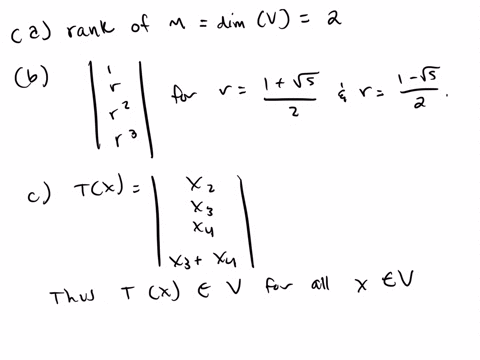 (a) rank of M = dim (V) = 2
(b) | 1 r r² r³ | for r = (1 + √5)/2 & r = (1 - √5)/2 .
c) T(x) = | x₂ x₃ x₄ x₃ + x₄ |
Thus T (x) ∈ V for all x ∈ V